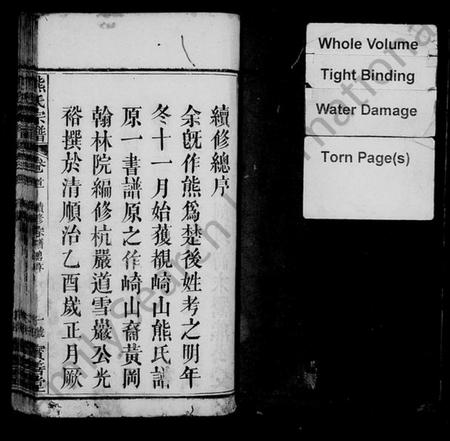 續修總序
余旣作熊爲楚後姓考之明年
冬十一月始獲覩崎山熊氏譜
原一書譜原之作崎山裔黃岡
翰林院編修杭嚴道雪嚴公光
裕撰於清順治乙酉歲正月厥
熊氏宗譜
卷首
Whole Volume
Tight Binding
Water Damage
Torn Page(s)